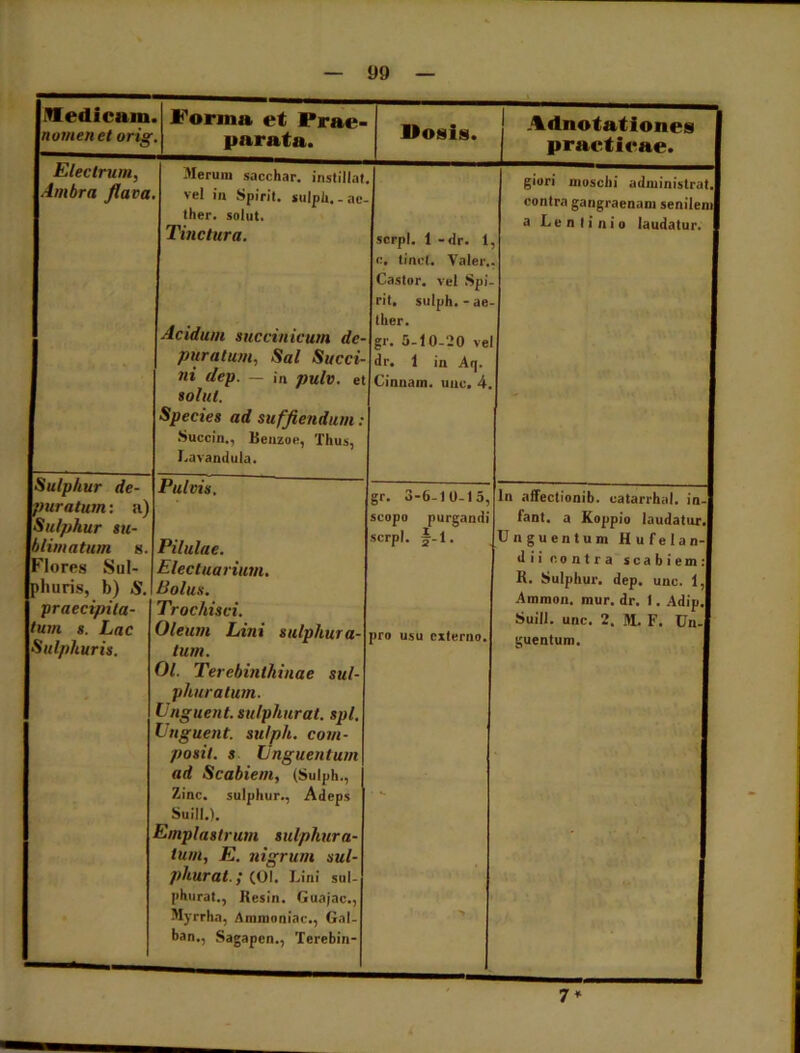 — 99 —
Medicam.
nomen et orig.
Forma et Prae-
parata.
Dosis.
Adnotationes
practicae.
Electrum,
Ambra flava.
Merum sacchar. instillat.
vel in Spirit. sulph. - ae-
ther. solut.
Tinctura.
Acidum succinicum de-
puratum, Sal Succi-
ni dep. — in pulv. et
solut.
Species ad suffiendum:
Succin., Benzoe, Thus,
Lavandula.
scrpl. 1 - dr. 1,
c. tinct. Valer.,
Castor. vel Spi-
rit. sulph. - ae-
ther.
gr. 5-10-20 vel
dr. 1 in Aq.
Cinnam. unc. 4.
giori moschi administrat.
contra gangraenam senilem
a Lentinio laudatur.
Sulphur de-
puratum: a)
Sulphur su-
blimatum s.
Flores Sul-
phuris, b) S.
praecipita-
tum s. Lac
Sulphuris.
Pulvis.
Pilulae.
Electuarium.
Bolus.
Trochisci.
Oleum Lini sulphura-
tum.
Ol. Terebinthinae sul-
phuratum.
Unguent. sulphurat. spl.
Unguent. sulph. com-
posit. s. Unguentum
ad Scabiem, (Sulph.,
Zinc. sulphur., Adeps
Suill.).
Emplastrum sulphura-
tum, E. nigrum sul-
phurat.; (Ol. Lini sul-
phurat., Resin. Guajac.,
Myrrha, Ammoniac., Gal-
ban., Sagapen., Terebin-
gr. 3-6-10-15,
scopo purgandi
scrpl. ½-1.
pro usu externo.
In affectionib. catarrhal. in-
fant. a Koppio laudatur.
Unguentum Hufelan-
dii contra scabiem:
R. Sulphur. dep. unc. 1,
Ammon. mur. dr. 1. Adip.
Suill. unc. 2. M. F. Un-
guentum.
7*